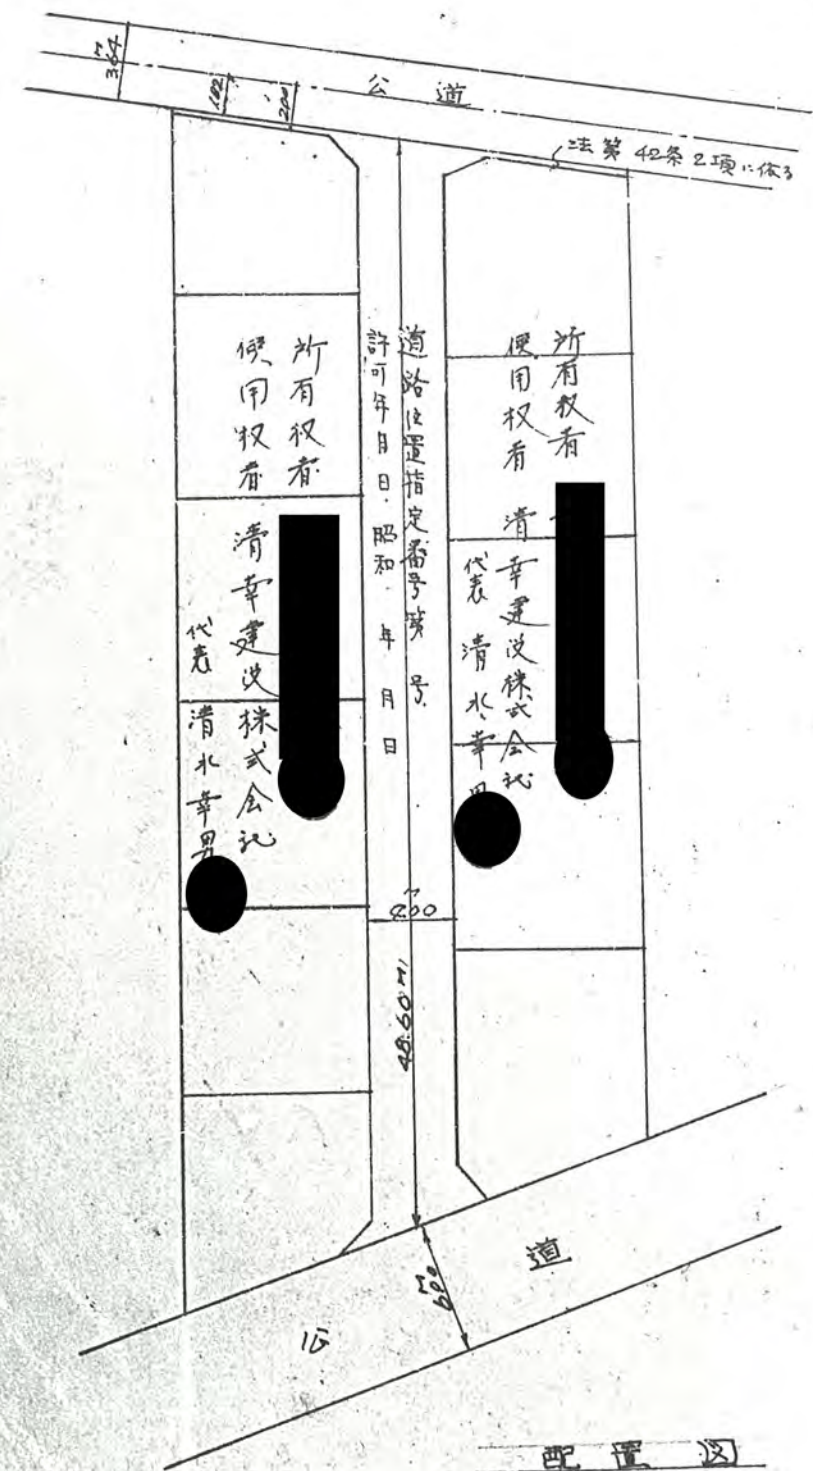 公道
3.64M
1.82
2.00
法第42条2項に依る
所有权者
使用权者 清幸建设株式会社
代表 清水幸男
道路位置指定番号第 号
許可年月日 昭和 年 月 日
所有权者
使用权者 清幸建设株式会社
代表 清水幸男
4.00M
48.60M
6.00M
公道
配置図